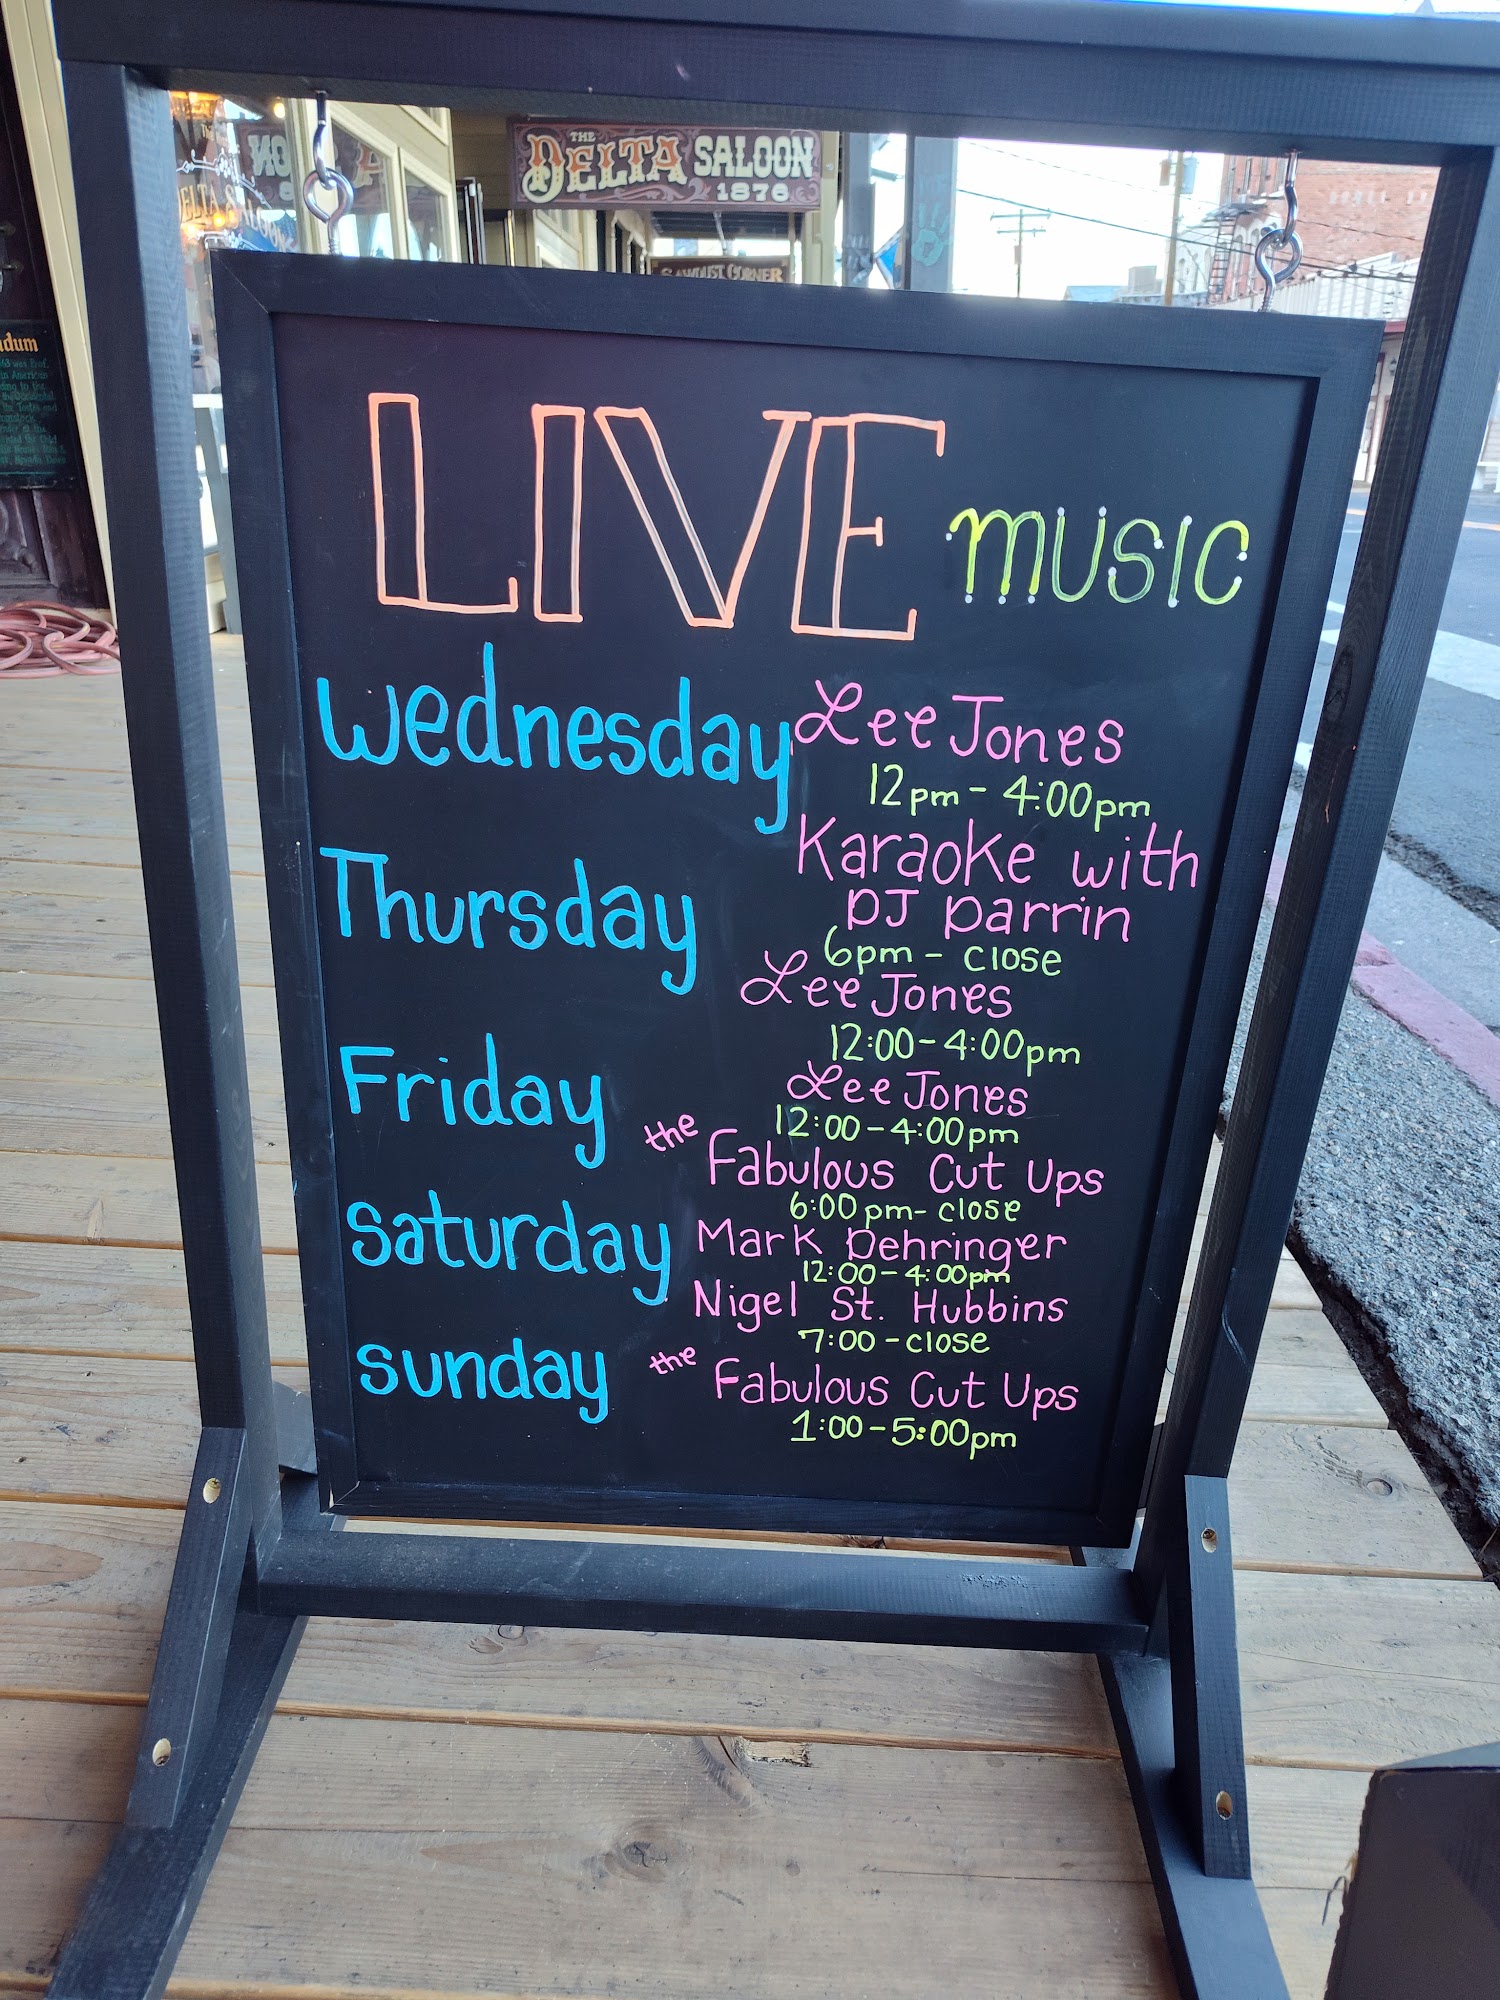 THE
DELTA SALOON
1876
SAWDUST CORNER
LIVE music
Wednesday Lee Jones
12pm - 4:00pm
Karaoke with
Thursday DJ Darrin
6pm - close
Lee Jones
12:00 - 4:00pm
Friday Lee Jones
12:00 - 4:00pm
the Fabulous Cut Ups
6:00 pm - close
Saturday Mark Dehringer
12:00 - 4:00pm
Nigel St. Hubbins
7:00 - close
Sunday the Fabulous Cut Ups
1:00 - 5:00pm